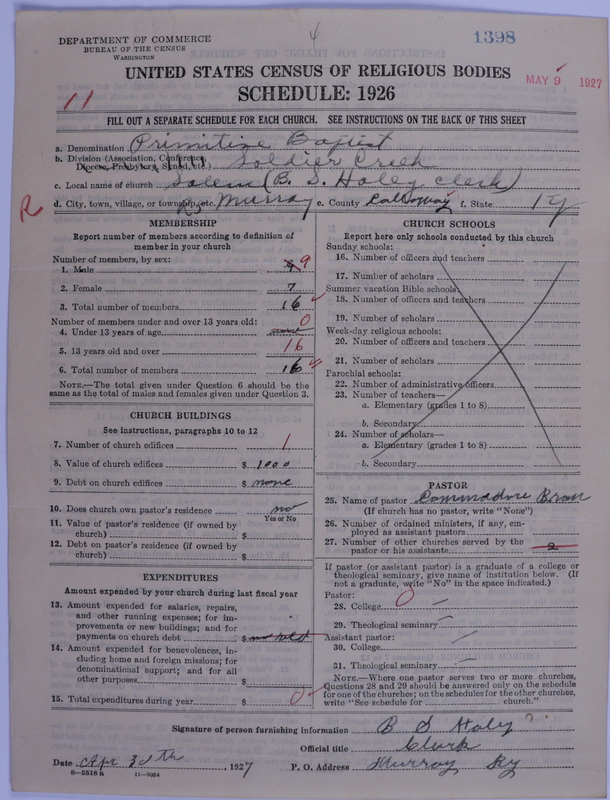 DEPARTMENT OF COMMERCE
BUREAU OF THE CENSUS
WASHINGTON
4
1398
UNITED STATES CENSUS OF RELIGIOUS BODIES
MAY 9 1927
SCHEDULE: 1926
11
FILL OUT A SEPARATE SCHEDULE FOR EACH CHURCH. SEE INSTRUCTIONS ON THE BACK OF THIS SHEET
a. Denomination Primitive Baptist
b. Division (Association, Conference, Diocese, Presbytery, Synod, etc.) Soldier Creek
c. Local name of church Salem (B. S. Haley clerk)
R
d. City, town, village, or township, etc. Murray e. County Calloway f. State Ky
MEMBERSHIP
Report number of members according to definition of member in your church
Number of members, by sex:
1. Male 9
2. Female 7
3. Total number of members 16
Number of members under and over 13 years old:
4. Under 13 years of age none 0
5. 13 years old and over 16
6. Total number of members 16
NOTE.—The total given under Question 6 should be the same as the total of males and females given under Question 3.
CHURCH BUILDINGS
See instructions, paragraphs 10 to 12
7. Number of church edifices 1
8. Value of church edifices $ 1000
9. Debt on church edifices $ none
10. Does church own pastor's residence no
Yes or No
11. Value of pastor's residence (if owned by church) $
12. Debt on pastor's residence (if owned by church) $
EXPENDITURES
Amount expended by your church during last fiscal year
13. Amount expended for salaries, repairs, and other running expenses; for improvements or new buildings; and for payments on church debt $
14. Amount expended for benevolences, including home and foreign missions; for denominational support; and for all other purposes $
15. Total expenditures during year $ 0
CHURCH SCHOOLS
Report here only schools conducted by this church
Sunday schools:
16. Number of officers and teachers
17. Number of scholars
Summer vacation Bible schools:
18. Number of officers and teachers
19. Number of scholars
Week-day religious schools:
20. Number of officers and teachers
21. Number of scholars
Parochial schools:
22. Number of administrative officers
23. Number of teachers—
a. Elementary (grades 1 to 8)
b. Secondary
24. Number of scholars—
a. Elementary (grades 1 to 8)
b. Secondary
PASTOR
25. Name of pastor Commadore Bran
(If church has no pastor, write "None")
26. Number of ordained ministers, if any, employed as assistant pastors
27. Number of other churches served by the pastor or his assistants 2
If pastor (or assistant pastor) is a graduate of a college or theological seminary, give name of institution below. (If not a graduate, write "No" in the space indicated.)
Pastor:
28. College 0
29. Theological seminary
Assistant pastor:
30. College
31. Theological seminary
NOTE.—Where one pastor serves two or more churches, Questions 28 and 29 should be answered only on the schedule for one of the churches; on the schedules for the other churches, write "See schedule for church."
Signature of person furnishing information B S Haley ?
Official title Clurk
Date Apr 30th, 1927 P. O. Address Murray Ky
8—5518 a 11—9054